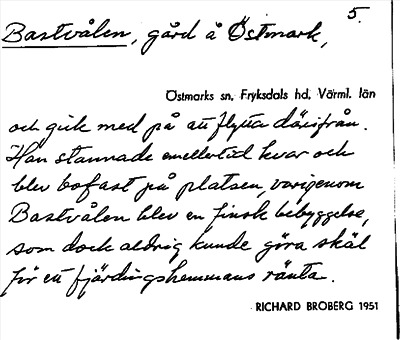 5.
Bastvålen, gård å Östmark,
Östmarks sn, Fryksdals hd, Värml. län
och gick med på att flytta därifrån.
Han stannade emellertid kvar och
blev bofast på platsen, varigenom
Bastvålen blev en finsk bebyggelse,
som dock aldrig kunde göra skäl
för ett fjärdingshemmans ränta.
RICHARD BROBERG 1951